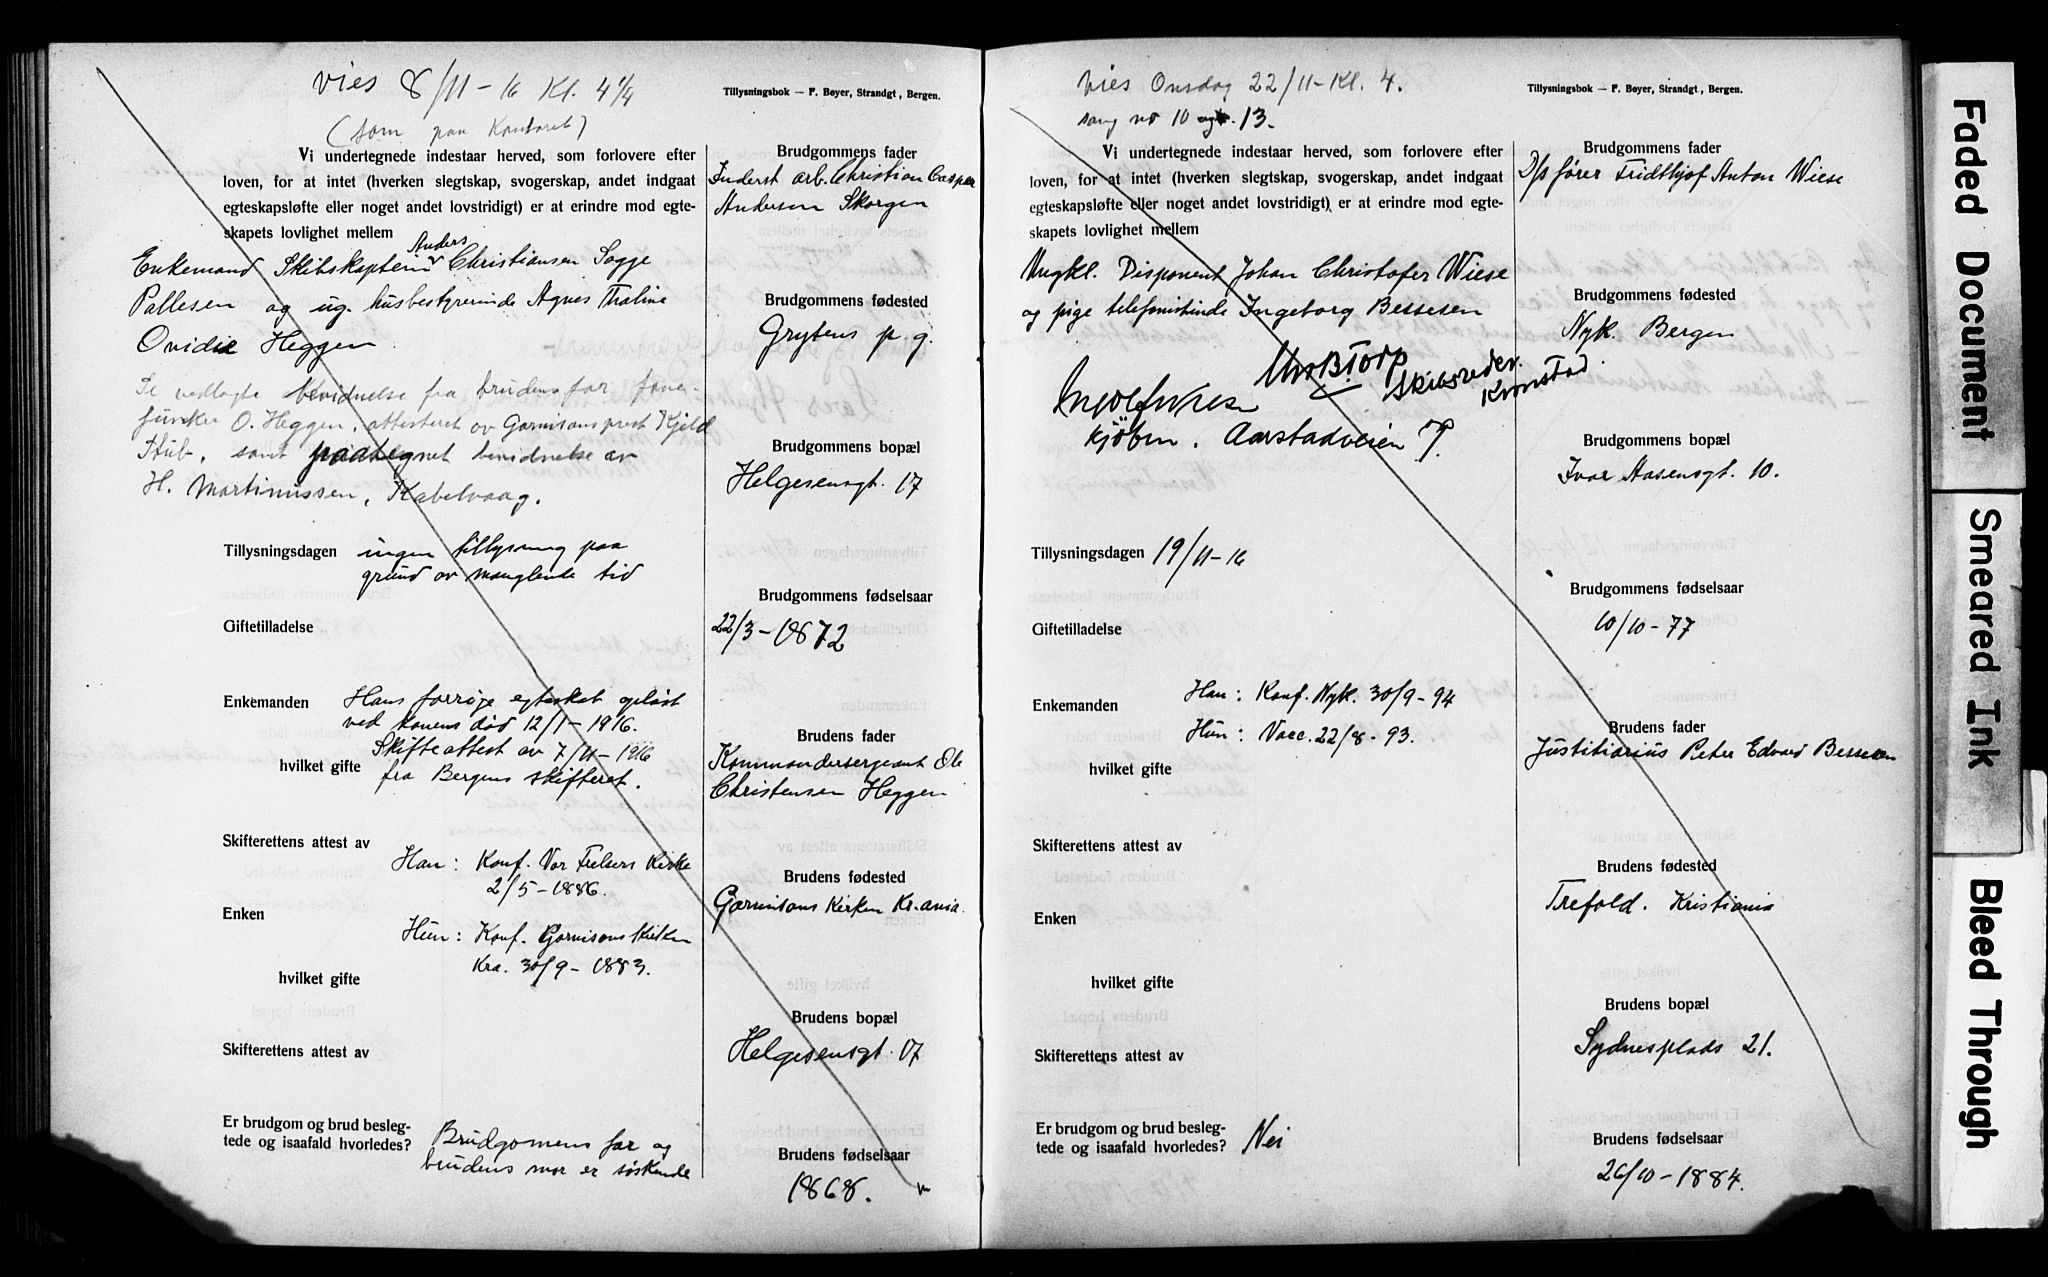 vies 8/11-16 Kl. 4 1/4
(som paa Kontoret)
Tillysningsbok — F. Bøyer, Strandgt, Bergen.
Vi undertegnede indestaar herved, som forlovere efter
loven, for at intet (hverken slegtskap, svogerskap, andet indgaat
egteskapsløfte eller noget andet lovstridigt) er at erindre mod egte-
skapets lovlighet mellem
Anders
Enkemand Skibskaptein Christiansen Sogge
Pallesen og ug. husbestyrerinde Agnes Thaline
Ovidie Heggen
Se vedlagte bevidnelse fra brudens far fane-
junker O. Heggen, attesteret av Garnisonsprest Kjeld
Stub, samt paategnet bevidnelse av
H. Martinussen, Kabelvaag.
Tillysningsdagen ingen tillysning paa
grund av manglende tid
Giftetilladelse
Enkemanden Hans forrige egteskab opløst
ved konens død 12/1-1916.
Skifteattest av 7/11-1916
hvilket gifte fra Bergens skifteret.
Skifterettens attest av
Han: Konf. Vor Frelsers Kirke
2/5-1886.
Enken
Hun: Konf. Garnisonskirken
Kra. 30/9-1883.
hvilket gifte
Skifterettens attest av
Er brudgom og brud besleg-
tede og isaafald hvorledes? Brudgomens far og
brudens mor er søskende
Brudgommens fader
Inderst arb. Christian Casper
Andersen Skorgen
Brudgommens fødested
Grytens p. g.
Brudgommens bopæl
Helgesensgt. 17
Brudgommens fødselsaar
22/3-1872
Brudens fader
Kommandersergeant Ole
Christensen Heggen
Brudens fødested
Garnisons Kirken Kr.ania.
Brudens bopæl
Helgesensgt. 17
Brudens fødselsaar
1868.
vies Onsdag 22/11-Kl. 4.
sang no 10 og 13.
Tillysningsbok — F. Bøyer, Strandgt, Bergen.
Vi undertegnede indestaar herved, som forlovere efter
loven, for at intet (hverken slegtskap, svogerskap, andet indgaat
egteskapsløfte eller noget andet lovstridigt) er at erindre mod egte-
skapets lovlighet mellem
Ungkl. Disponent Johan Christofer Wiese
og pige telefonistinde Ingeborg Bessesen
Skibsreder.
Kronstad
kjøbm. Aarstadveien 7.
Tillysningsdagen 19/11-16
Giftetilladelse
Enkemanden Han: Konf. Nyk. 30/9-94
Hun: Vacc. 22/8-93.
hvilket gifte
Skifterettens attest av
Enken
hvilket gifte
Skifterettens attest av
Er brudgom og brud besleg-
tede og isaafald hvorledes? Nei
Brudgommens fader
D/s fører Fridthjof Anton Wiese
Brudgommens fødested
Nyk. Bergen
Brudgommens bopæl
Ivar Aasensgt. 10.
Brudgommens fødselsaar
10/10-77
Brudens fader
Justitiarius Peter Edvard Bessesen
Brudens fødested
Trefold. Kristiania
Brudens bopæl
Sydnesplads 21.
Brudens fødselsaar
26/10-1884.
Faded Document
Smeared Ink
Bleed Through